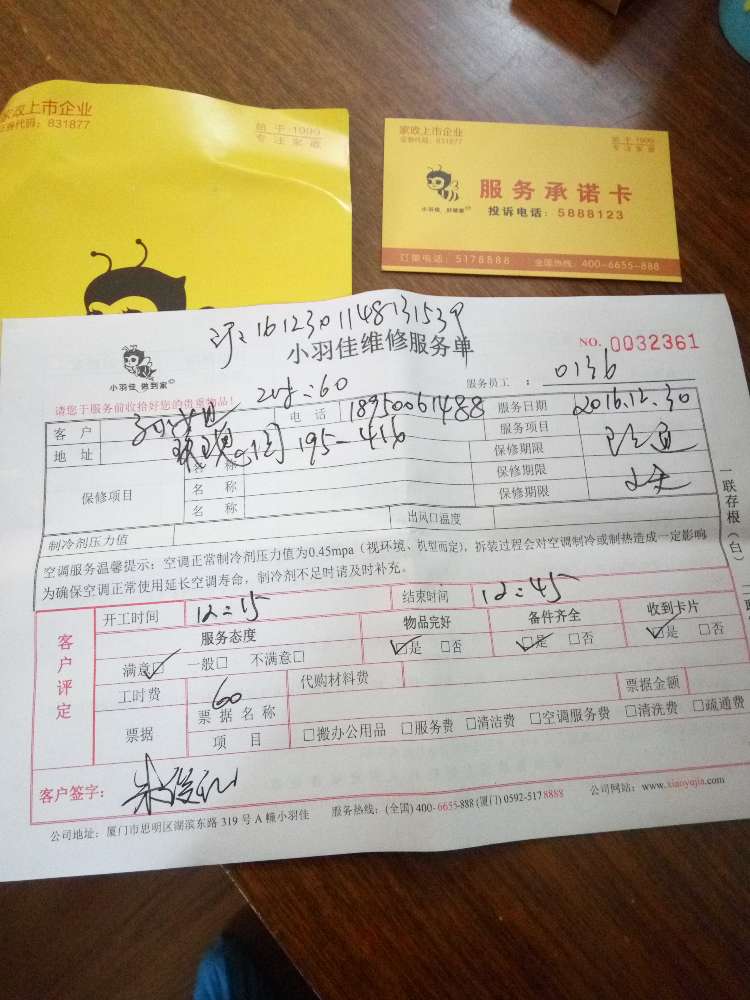 家政上市企业
证券代码：831877
始于·1999
专注家政
家政上市企业
证券代码：831877
始于·1999
专注家政
小羽佳 好管家
服务承诺卡
投诉电话：5888123
订单电话：5178888 全国热线：400-6655-888
小羽佳 做到家
小羽佳维修服务单
NO. 0032361
请您于服务前收拾好您的贵重物品！
=60
服务员工： 0136
客户 电话 18950061488 服务日期 2016.12.30
地址 195-416 服务项目
保修项目 名称 保修期限
名称 保修期限
名称 保修期限
制冷剂压力值 出风口温度
空调服务温馨提示：空调正常制冷剂压力值为0.45mpa（视环境、机型而定），拆装过程会对空调制冷或制热造成一定影响
为确保空调正常使用延长空调寿命，制冷剂不足时请及时补充。
一联存根（白）
客户评定
开工时间 12:15 结束时间 12:45
服务态度 物品完好 备件齐全 收到卡片
满意□ 一般□ 不满意□ □是 □否 □是 □否 □是 □否
工时费 60 代购材料费
票据 票据名称 票据金额
项目 □搬办公用品 □服务费 □清洁费 □空调服务费 □清洗费 □疏通费
客户签字：
公司地址：厦门市思明区湖滨东路 319 号 A 幢小羽佳 服务热线：(全国) 400-6655-888 (厦门) 0592-5178888 公司网站：www.xiaoyujia.com